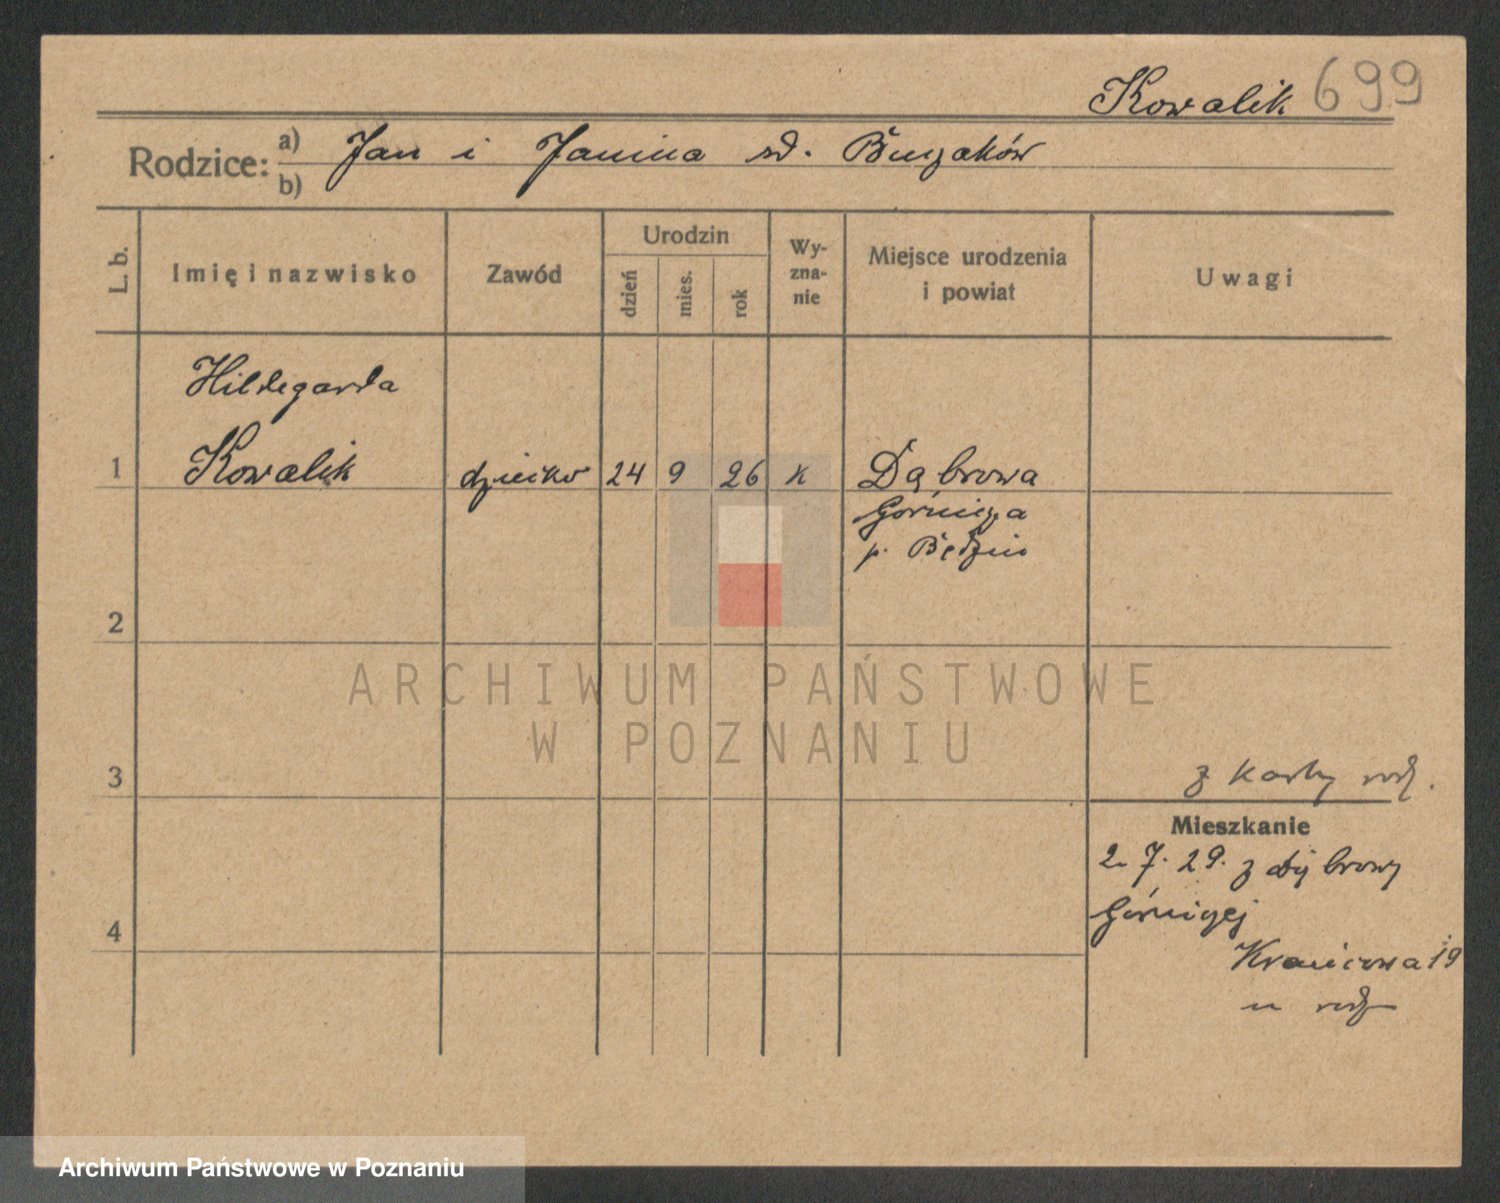 Kowalik 699
Rodzice: a) Jan i Janina zd.
b)
L. b.
Imię i nazwisko
Zawód
Urodzin
dzień
mies.
rok
Wy-
zna-
nie
Miejsce urodzenia
i powiat
Uwagi
Hildegarda
1 Kowalik dziecko 24 9 26 k Dąbrowa
Górnicza
p. Będzin
2
ARCHIWUM PAŃSTWOWE
W POZNANIU
3
z karty rodz.
Mieszkanie
2. 7. 29. z Dąbrowy
Górniczej
4
19
u rodz
Archiwum Państwowe w Poznaniu